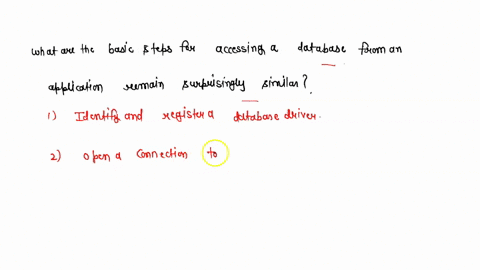 what are the basic steps for accessing a database from an
application remain surprisingly similar?.
1) Identify and register a database driver.
2) open a connection to